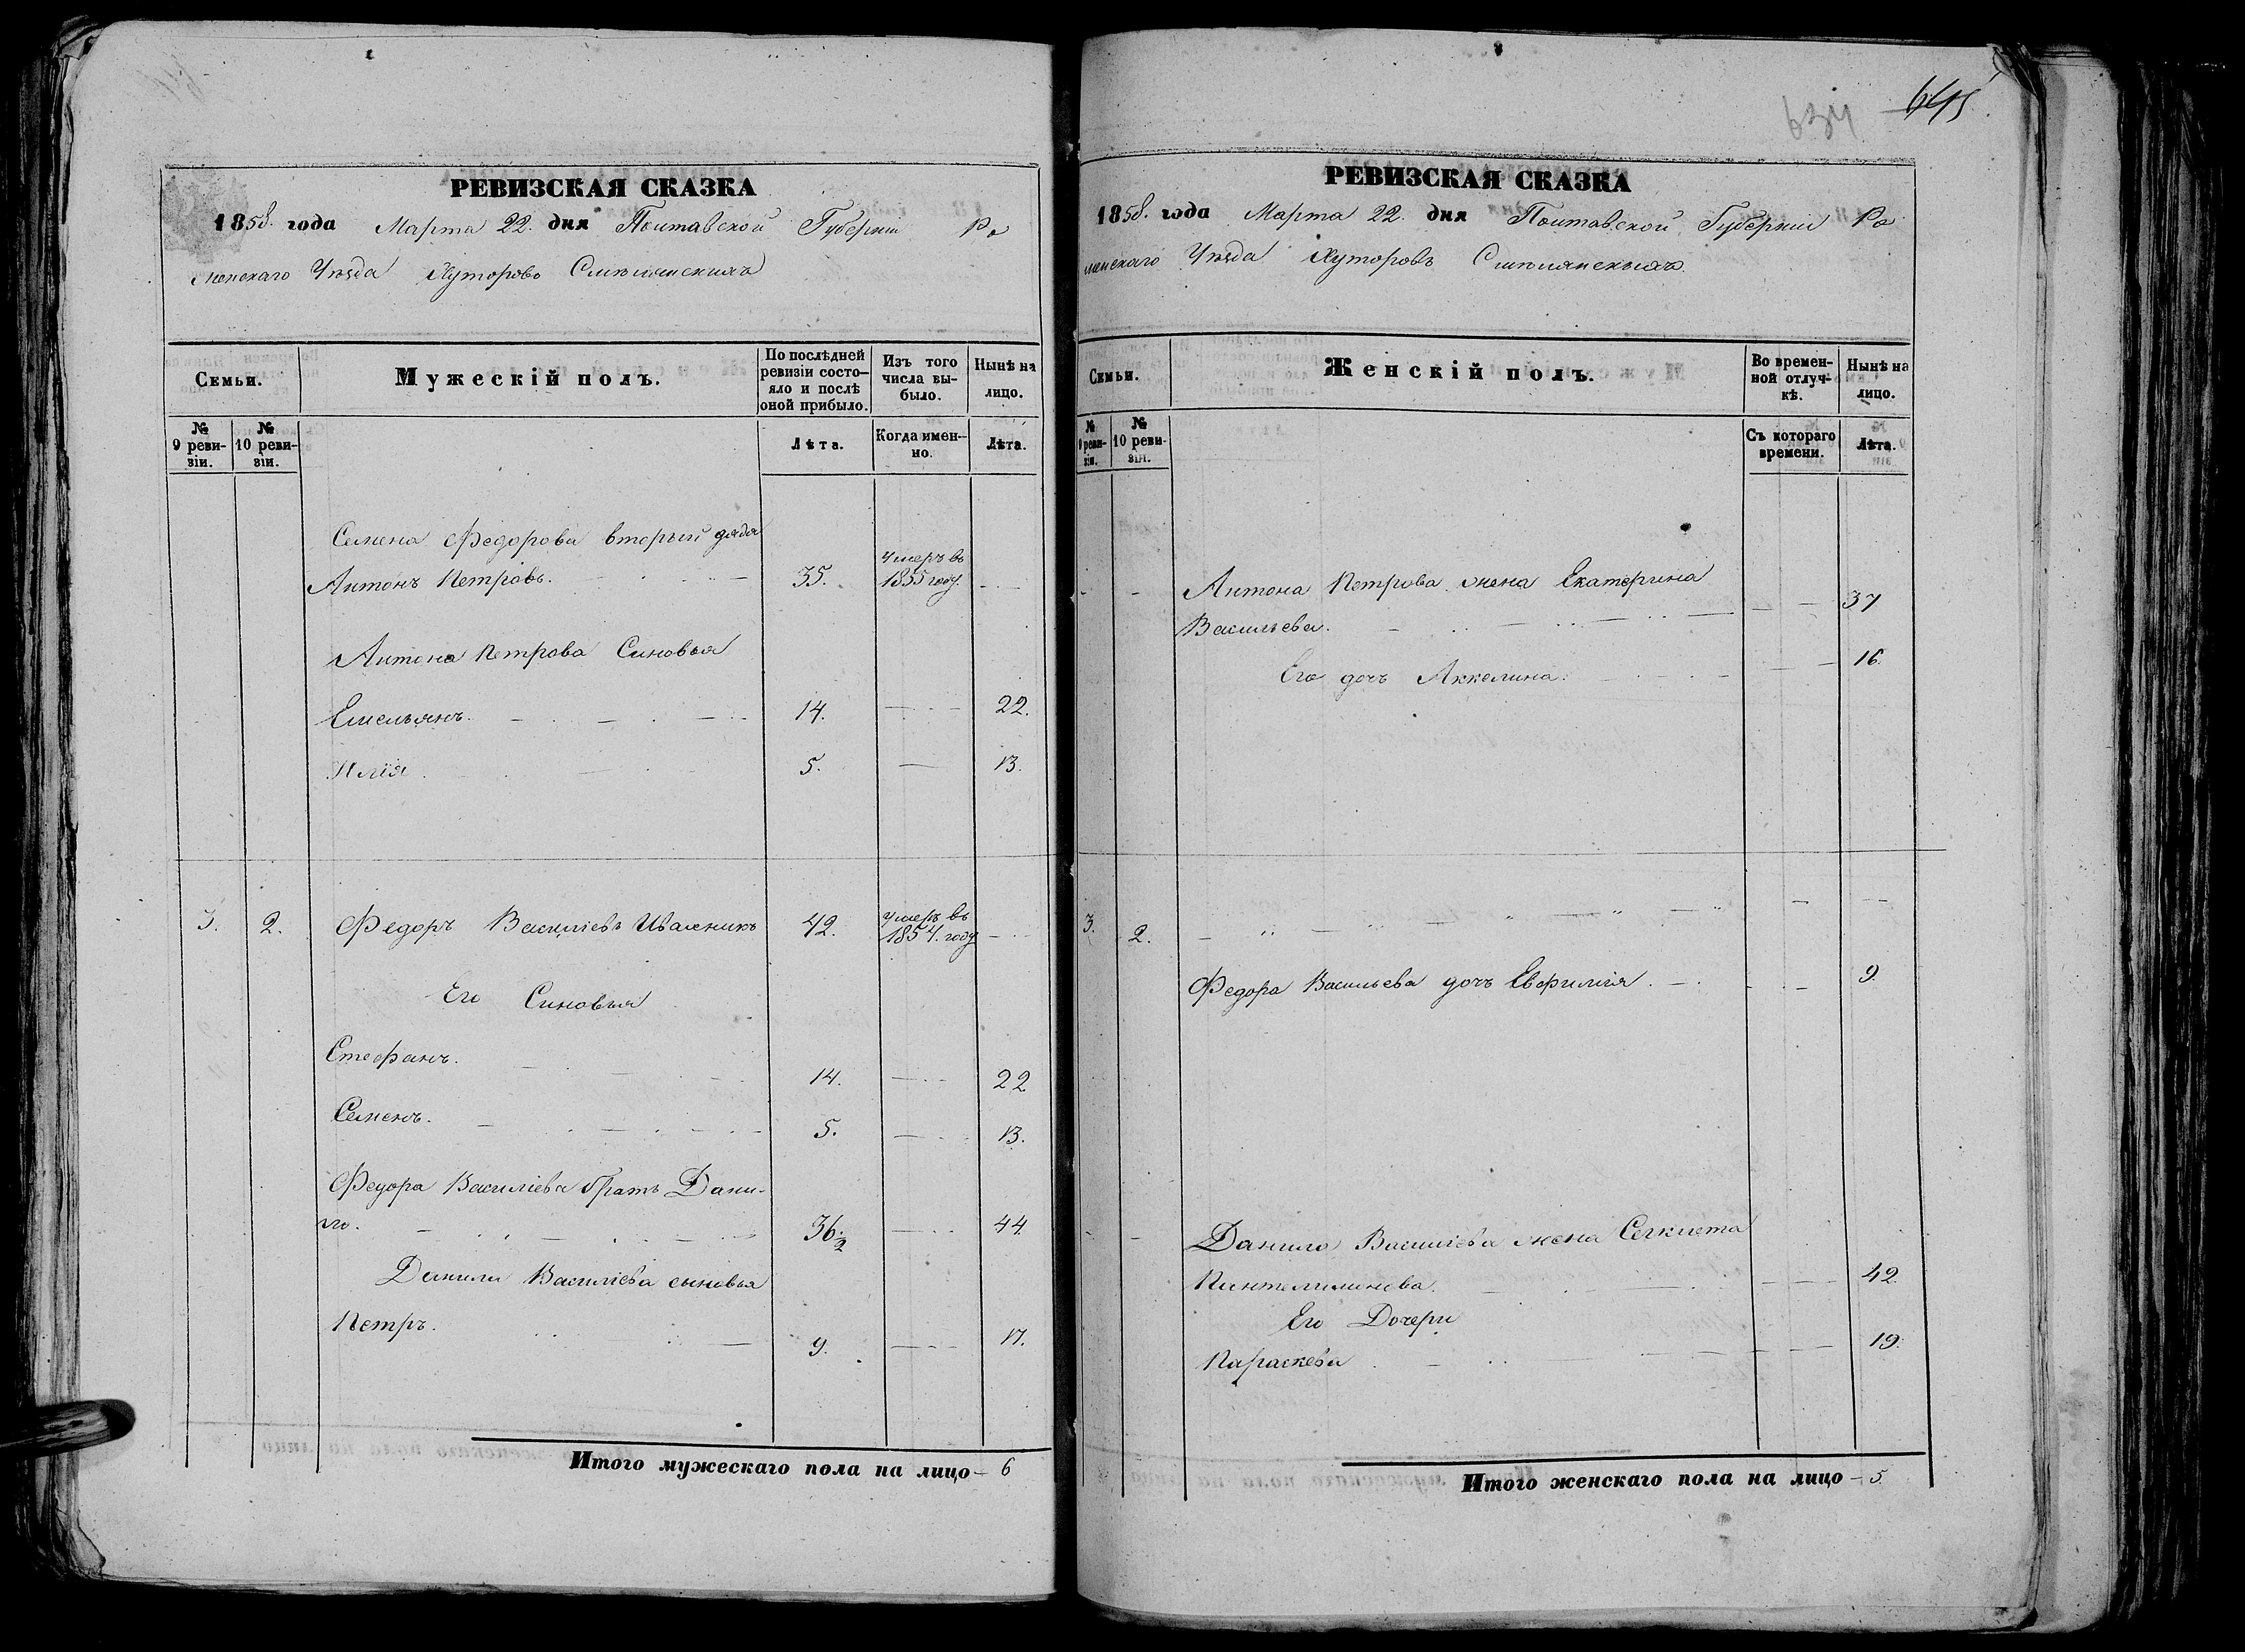 РЕВИЗСКАЯ СКАЗКА
1858. года Марта 22. дня Полтавской Губерніи Ро
менскаго Уѣзда Хуторовъ
Семьи.
Мужескій полъ.
По послѣдней ревизіи состо-
яло и послѣ
оной прибыло.
Изъ того
числа вы-
было.
Нынѣ на
лицо.
№
9 реви-
зіи.
№
10 реви-
зіи.
Лѣта.
Когда имен-
но.
Лѣта.
Семена Федорова вторый дядя
Антонъ Петровъ. 35. Умеръ въ
1855 году.
Антона Петрова Синовья
Емельянъ. 14. 22.
Илія 5. 13.
3. 2. Федоръ Василіевъ 42. Умеръ въ
1854. году
Его Синовья
Стефанъ. 14. 22
Семенъ. 5. 13.
Федора Василіева братъ Дани-
ло. 36. 2 44.
Данила Василіева сыновья
Петръ. 9. 17.
Итого мужескаго пола на лицо 6
634 645
РЕВИЗСКАЯ СКАЗКА
1858. года Марта 22. дня Полтавской Губерніи Ро
менскаго Уѣзда Хуторовъ
Семьи.
Женскій полъ.
Во времен-
ной отлуч-
кѣ.
Нынѣ на
лицо.
№
9 реви-
зіи.
№
10 реви-
зіи.
Съ котораго
времени.
Лѣта.
Антона Петрова жена Екатерина
Васильева. 37
Его дочь Аккелина. 16.
3. 2.
Федора Васильева дочь Евфимія. 9.
Данила Василіева жена
Пантелимонова. 42
Его Дочери
Параскева 19.
Итого женскаго пола на лицо 5.